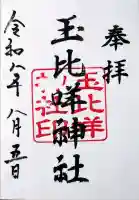 奉拝
玉比咩神社
玉比咩
神社印
令和八年八月五日